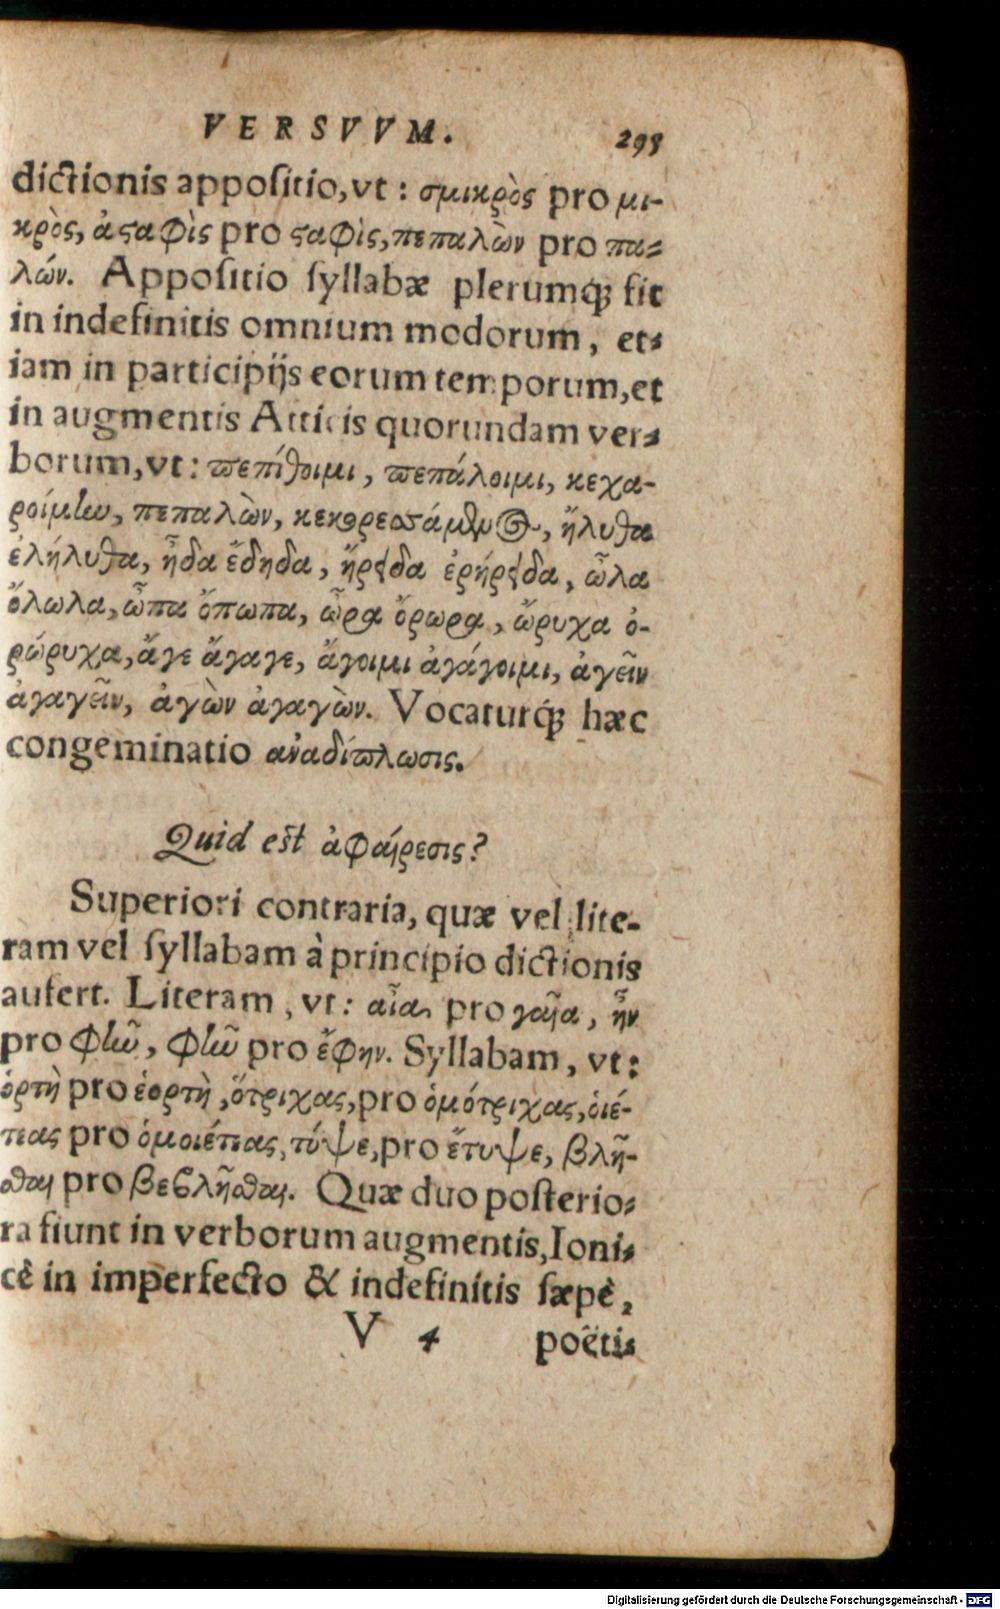 VERSVVM. 295
dictionis appoſitio, vt : σμικρὸς pro μι-
κρὸς, ἀςαφὶς pro ςαφὶς, πεπαλὼν pro πα-
λών. Appoſitio ſyllabæ plerumq́; fit
in indefinitis omnium modorum, et-
iam in participijs eorum temporum, et
in augmentis Atticis quorundam ver-
borum, vt : πεπίθοιμι, πεπάλοιμι, κεχα-
ροίμην, πεπαλὼν, ἤλυθα
ἐλήλυθα, ἦδα ἔδηδα, ἤρειδα ἐρήρειδα, ὦλα
ὄλωλα, ὦπα ὄπωπα, ὦρα ὄρωρα, ὤρυχα ὀ-
ρώρυχα, ἄγε ἄγαγε, ἄγοιμι ἀγάγοιμι, ἀγεῖν
ἀγαγεῖν, ἀγὼν ἀγαγὼν. Vocaturq́; hæc
congeminatio ἀναδίπλωσις.
Quid eſt ἀφαίρεσις?
Superiori contraria, quæ vel lite-
ram vel ſyllabam à principio dictionis
aufert. Literam, vt: αἶα pro γαῖα, ἦν
pro φῆν, φῆν pro ἔφην. Syllabam, vt:
ὁρτὴ pro ἑορτὴ, ὄτριχας, pro ὁμότριχας, οἰέ-
τεας pro ὁμοιέτεας, τύψε, pro ἔτυψε, βλῆ-
σθαι pro βεβλῆσθαι. Quæ duo poſterio-
ra fiunt in verborum augmentis, Ioni-
cè in imperfecto & indefinitis ſæpè,
V 4 poëti-
Digitalisierung gefördert durch die Deutsche Forschungsgemeinschaft - DFG